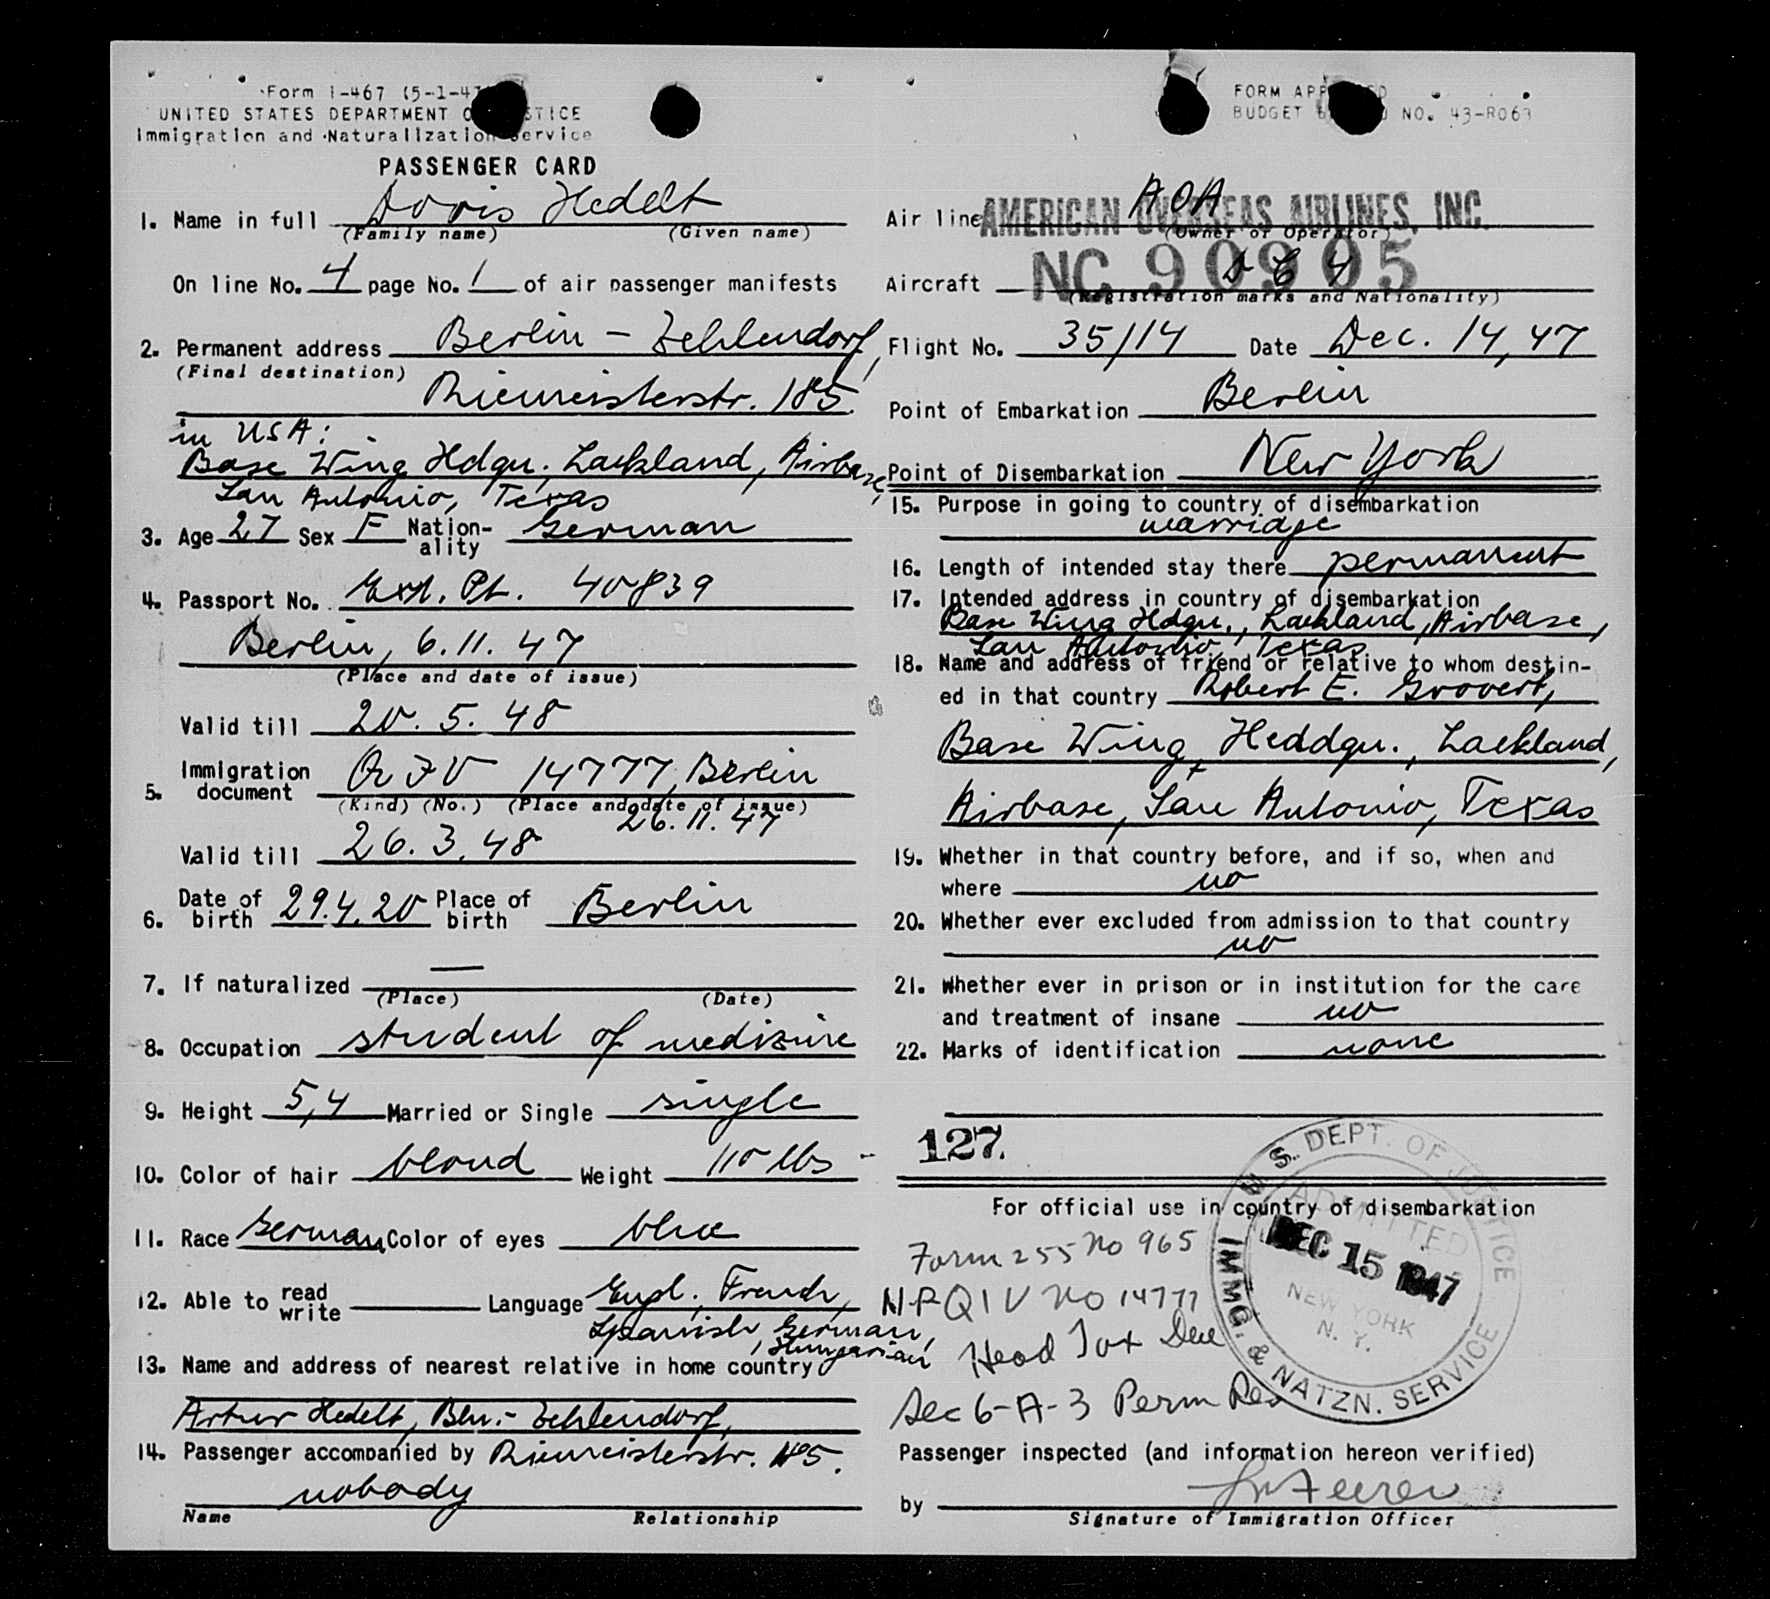 Form I-467 (5-1-47)
UNITED STATES DEPARTMENT OF JUSTICE
Immigration and Naturalization Service
PASSENGER CARD
1. Name in full Doris Hedelt
(Family name) (Given name)
On line No. 4 page No. 1 of air passenger manifests
2. Permanent address Berlin - Zehlendorf,
(Final destination)
Riemeisterstr. 185.
in USA:
Base Wing Hdqu. Lackland, Airbase,
San Antonio, Texas
3. Age 27 Sex F Nation-ality German
4. Passport No. Ext. Pt. 40839
Berlin, 6.11.47
(Place and date of issue)
Valid till 20.5.48
5. Immigration document QIV 14777, Berlin
(Kind) (No.) (Place and date of issue)
26.11.47
Valid till 26.3.48
6. Date of birth 29.4.20 Place of birth Berlin
7. If naturalized —
(Place) (Date)
8. Occupation student of medizine
9. Height 5,4 Married or Single single
10. Color of hair blond Weight 110 lbs
11. Race German Color of eyes blue
12. Able to read write Language Engl., French,
Spanish, German,
Hungarian
13. Name and address of nearest relative in home country
Artur Hedelt, Bln.- Zehlendorf,
14. Passenger accompanied by Riemeisterstr. 185.
nobody
Name Relationship
FORM APPROVED
BUDGET NO. 43-R063
Air line AMERICAN OVERSEAS AIRLINES, INC.
AOA
(Owner or Operator)
Aircraft NC 90905
DC 4
(Registration marks and Nationality)
Flight No. 35/14 Date Dec. 14, 47
Point of Embarkation Berlin
Point of Disembarkation New York
15. Purpose in going to country of disembarkation
marridge
16. Length of intended stay there permanent
17. Intended address in country of disembarkation
Base Wing Hdqu., Lackland, Airbase,
San Antonio, Texas
18. Name and address of friend or relative to whom destin-
ed in that country Robert E. Grovert,
Base Wing Heddqu., Lackland,
Airbase, San Antonio, Texas
19. Whether in that country before, and if so, when and
where no
20. Whether ever excluded from admission to that country
no
21. Whether ever in prison or in institution for the care
and treatment of insane no
22. Marks of identification none
127.
For official use in country of disembarkation
Form 255 No 965
NPQIV No 14777
Head Tax Due
Sec 6-A-3 Perm Res
U.S. DEPT. OF JUSTICE
ADMITTED
DEC 15 1947
NEW YORK
N.Y.
IMMG. & NATZN. SERVICE
Passenger inspected (and information hereon verified)
by
Signature of Immigration Officer